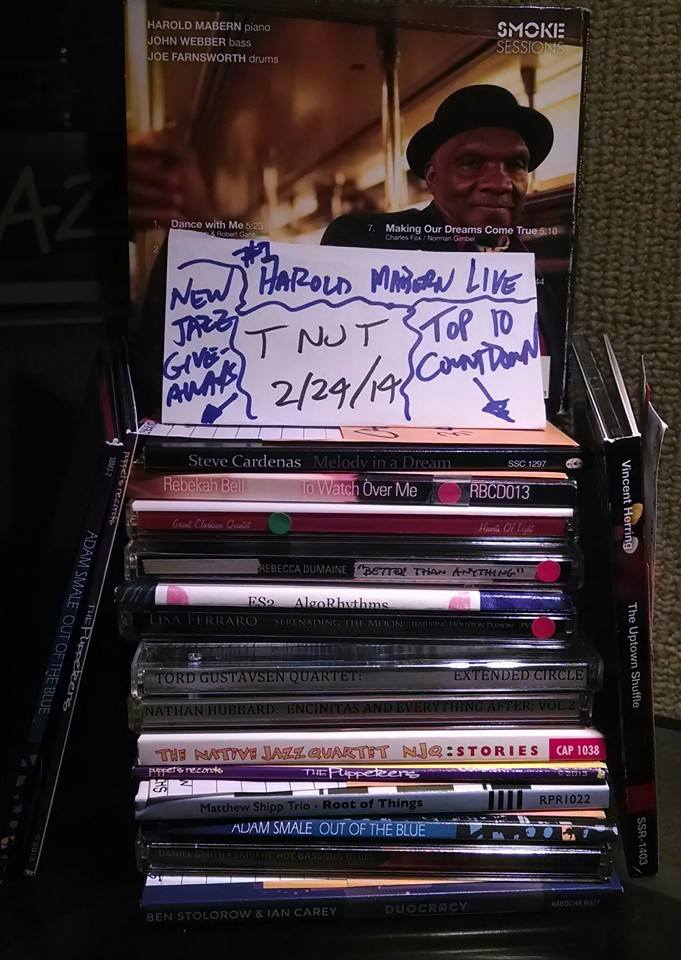 HAROLD MABERN piano
JOHN WEBBER bass
JOE FARNSWORTH drums
SMOKE
SESSIONS
1. Dance with Me 5:23
& Robert Gans
2
7. Making Our Dreams Come True 5:10
Charles Fox / Norman Gimbel
44
#1 HAROLD MABERN LIVE
NEW
JAZZ
GIVE-
AWAYS
T NJ T
2/24/14
TOP 10
COUNTDOWN
STEVE CARDENAS MELODY IN A DREAM SSC 1297
Rebekah Bell To Watch Over Me RBCD013
Grant Clarkson Quintet Hearts Of Light
REBECCA DUMAINE "BETTER THAN ANYTHING"
ES3 AlgoRhythms
LISA FERRARO SERENADING THE MOON FEATURING HOUSTON PERSON
TORD GUSTAVSEN QUARTET: EXTENDED CIRCLE
NATHAN HUBBARD: ENCINITAS AND EVERYTHING AFTER; VOL.2
THE NATIVE JAZZ QUARTET NJQ:STORIES CAP 1038
puppet's records THE PUPPEKERS ©2013
Matthew Shipp Trio - Root of Things RPR1022
ADAM SMALE OUT OF THE BLUE
DANIEL SMITH • SMOKIN' HOT BASSOON BLUES
BEN STOLOROW & IAN CAREY DUOCRACY KABOCHA 8027
ADAM SMALE OUT OF THE BLUE
puppet's records THE PUPPEKERS ©2013
Vincent Herring The Uptown Shuffle SSR-1403